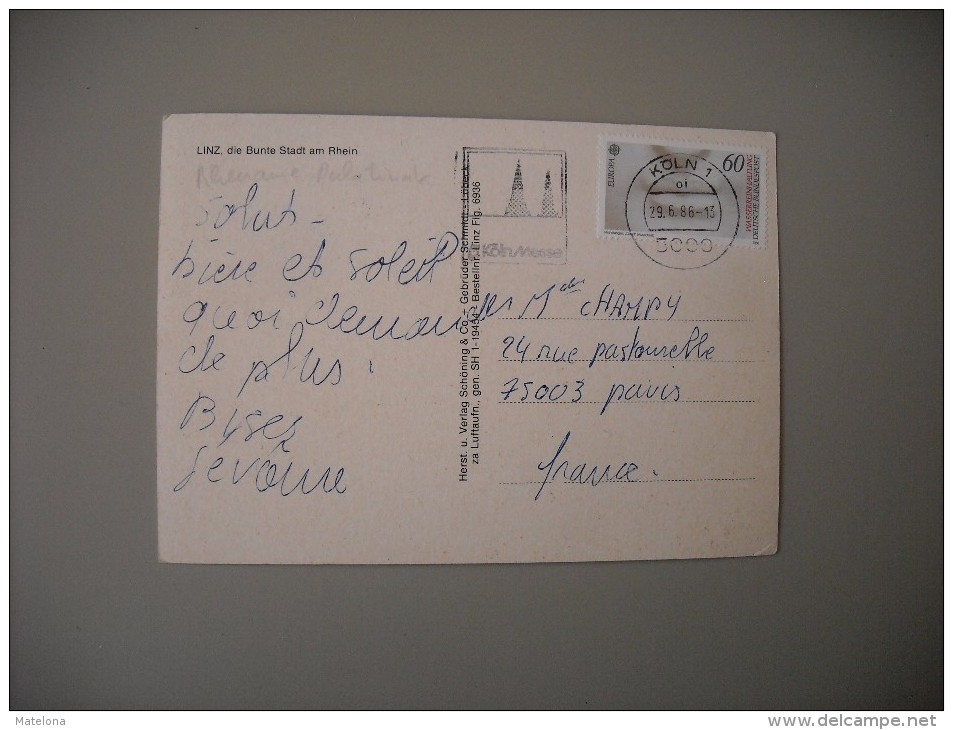 LINZ, die Bunte Stadt am Rhein
Salut -
bière et soleil
quoi demander
de plus.
Bises
Jérôme
Herst. u. Verlag Schöning & Co - Gebrüder Schmidt - Lübeck
za Luftaufn., gen. SH 1-19454 - Bestellnr. Linz Flg. 6936
KölnMesse
EUROPA
60
WASSERREINHALTUNG
DEUTSCHE BUNDESPOST
KÖLN 1
29.6.86-13
5000
CHAMPY
24 rue pastourelle
75003 paris
france.
Matelona
www.delcampe.net